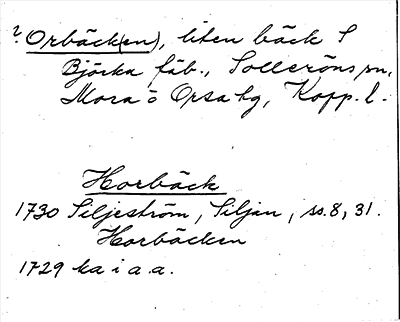 ? Orbäck(en), liten bäck S
Björka fäb., Solleröns sn,
Mora o Orsa tg, Kopp. l.
Horbäck
1730 Siljeström, Siljan, ss. 8, 31.
Horbäcken
1729 ka i a.a.